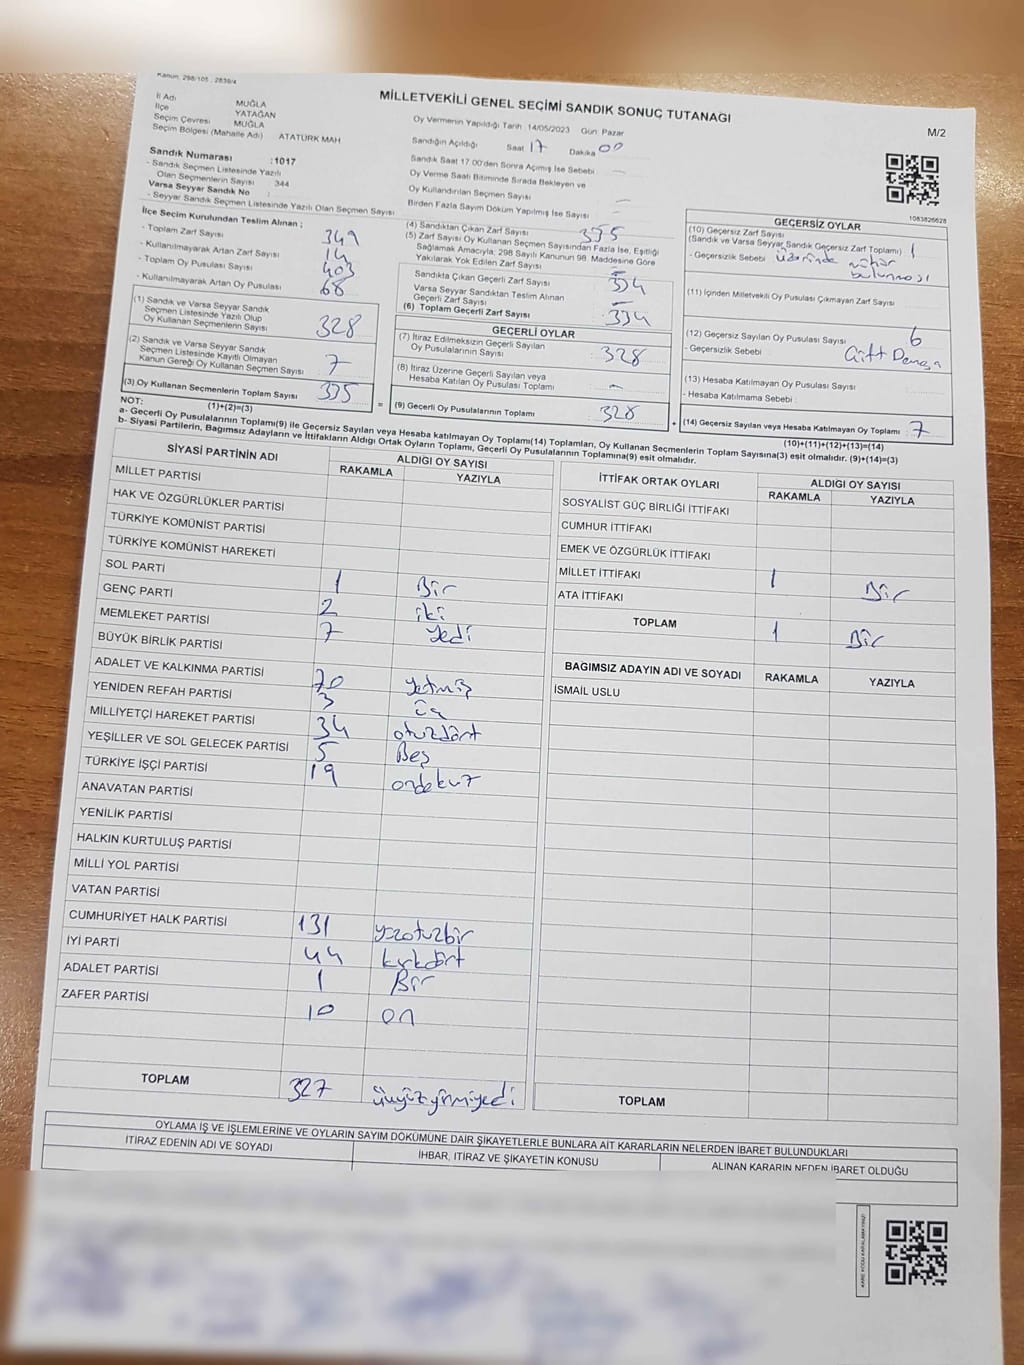 Kanun: 298/105 , 2839/4
MİLLETVEKİLİ GENEL SEÇİMİ SANDIK SONUÇ TUTANAĞI
M/2
İl Adı MUĞLA
İlçe YATAĞAN
Seçim Çevresi MUĞLA
Seçim Bölgesi (Mahalle Adı) ATATÜRK MAH
Sandık Numarası : 1017
- Sandık Seçmen Listesinde Yazılı
Olan Seçmenlerin Sayısı 344
Varsa Seyyar Sandık No :
- Seyyar Sandık Seçmen Listesinde Yazılı Olan Seçmen Sayısı
Oy Vermenin Yapıldığı Tarih 14/05/2023 Gün: Pazar
Sandığın Açıldığı Saat 17 Dakika 00
Sandık Saat 17:00'den Sonra Açımış İse Sebebi
Oy Verme Saati Bitiminde Sırada Bekleyen ve
Oy Kullandırılan Seçmen Sayısı
Birden Fazla Sayım Döküm Yapılmış İse Sayısı
1083826628
İlçe Seçim Kurulundan Teslim Alınan ;
- Toplam Zarf Sayısı 349
- Kullanılmayarak Artan Zarf Sayısı 14
- Toplam Oy Pusulası Sayısı 403
- Kullanılmayarak Artan Oy Pusulası 68
(1) Sandık ve Varsa Seyyar Sandık
Seçmen Listesinde Yazılı Olup
Oy Kullanan Seçmenlerin Sayısı 328
(2) Sandık ve Varsa Seyyar Sandık
Seçmen Listesinde Kayıtlı Olmayan
Kanun Gereği Oy Kullanan Seçmen Sayısı 7
(3) Oy Kullanan Seçmenlerin Toplam Sayısı 335
(1)+(2)=(3)
(4) Sandıktan Çıkan Zarf Sayısı 335
(5) Zarf Sayısı Oy Kullanan Seçmen Sayısından Fazla İse, Eşitliği
Sağlamak Amacıyla, 298 Sayılı Kanunun 98. Maddesine Göre
Yakılarak Yok Edilen Zarf Sayısı
Sandıkta Çıkan Geçerli Zarf Sayısı 334
Varsa Seyyar Sandıktan Teslim Alınan
Geçerli Zarf Sayısı
(6) Toplam Geçerli Zarf Sayısı 334
GEÇERLİ OYLAR
(7) İtiraz Edilmeksizin Geçerli Sayılan
Oy Pusulalarının Sayısı : 328
(8) İtiraz Üzerine Geçerli Sayılan veya
Hesaba Katılan Oy Pusulası Toplamı : -
= (9) Geçerli Oy Pusulalarının Toplamı : 328
GEÇERSİZ OYLAR
(10) Geçersiz Zarf Sayısı
(Sandık ve Varsa Seyyar Sandık Geçersiz Zarf Toplamı) : 1
- Geçersizlik Sebebi : üzerinde mühür
bulunması
(11) İçinden Milletvekili Oy Pusulası Çıkmayan Zarf Sayısı
(12) Geçersiz Sayılan Oy Pusulası Sayısı 6
- Geçersizlik Sebebi : Çift Damga
(13) Hesaba Katılmayan Oy Pusulası Sayısı
- Hesaba Katılmama Sebebi :
+ (14) Geçersiz Sayılan veya Hesaba Katılmayan Oy Toplamı : 7
(10)+(11)+(12)+(13)=(14)
NOT:
a- Geçerli Oy Pusulalarının Toplamı(9) ile Geçersiz Sayılan veya Hesaba katılmayan Oy Toplamı(14) Toplamları, Oy Kullanan Seçmenlerin Toplam Sayısına(3) eşit olmalıdır. (9)+(14)=(3)
b- Siyasi Partilerin, Bağımsız Adayların ve İttifakların Aldığı Ortak Oyların Toplamı, Geçerli Oy Pusulalarının Toplamına(9) eşit olmalıdır.
SİYASİ PARTİNİN ADI ALDIĞI OY SAYISI
RAKAMLA YAZIYLA
MİLLET PARTİSİ
HAK VE ÖZGÜRLÜKLER PARTİSİ
TÜRKİYE KOMÜNİST PARTİSİ
TÜRKİYE KOMÜNİST HAREKETİ
SOL PARTİ 1 Bir
GENÇ PARTİ 2 iki
MEMLEKET PARTİSİ 7 yedi
BÜYÜK BİRLİK PARTİSİ
ADALET VE KALKINMA PARTİSİ 70 yetmiş
YENİDEN REFAH PARTİSİ 3 üç
MİLLİYETÇİ HAREKET PARTİSİ 34 otuzdört
YEŞİLLER VE SOL GELECEK PARTİSİ 5 Beş
TÜRKİYE İŞÇİ PARTİSİ 19 ondokuz
ANAVATAN PARTİSİ
YENİLİK PARTİSİ
HALKIN KURTULUŞ PARTİSİ
MİLLİ YOL PARTİSİ
VATAN PARTİSİ
CUMHURİYET HALK PARTİSİ 131 yüzotuzbir
İYİ PARTİ 44 kırkdört
ADALET PARTİSİ 1 Bir
ZAFER PARTİSİ 10 on
TOPLAM 327 üçyüzyirmiyedi
İTTİFAK ORTAK OYLARI ALDIĞI OY SAYISI
RAKAMLA YAZIYLA
SOSYALİST GÜÇ BİRLİĞİ İTTİFAKI
CUMHUR İTTİFAKI
EMEK VE ÖZGÜRLÜK İTTİFAKI
MİLLET İTTİFAKI 1 Bir
ATA İTTİFAKI
TOPLAM 1 Bir
BAĞIMSIZ ADAYIN ADI VE SOYADI RAKAMLA YAZIYLA
İSMAİL USLU
TOPLAM
OYLAMA İŞ VE İŞLEMLERİNE VE OYLARIN SAYIM DÖKÜMÜNE DAİR ŞİKAYETLERLE BUNLARA AİT KARARLARIN NELERDEN İBARET BULUNDUKLARI
İTİRAZ EDENİN ADI VE SOYADI İHBAR, İTİRAZ VE ŞİKAYETİN KONUSU ALINAN KARARIN NEDEN İBARET OLDUĞU
KARE KODU KARALAMAYINIZ!